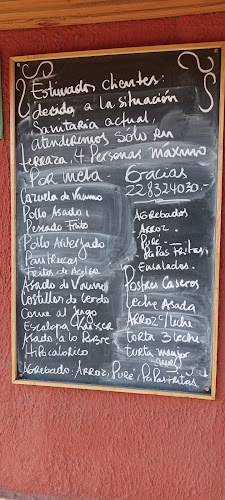 Estimados clientes:
decido a la situación
Sanitaria actual,
atenderemos sólo en
terraza, 4 Personas máximo
Por mesa - Gracias
228324030.-
Cazuela de Vacuno
Pollo Asado
Pescado Frito
Pollo Arverjado
Pantrucas
Asado de Vacuno
Costillar de Cerdo
Carne al Jugo
Escalopa Kaiser
Asado a lo Pobre
Hipocalórico
Agregado: Arroz, Puré, Papas Fritas
Agregados
- Arroz.
- Puré. -
- Papas Fritas
- Ensaladas.
Postres Caseros
Leche Asada
Arroz c/leche
torta 3 leche
torta mujer